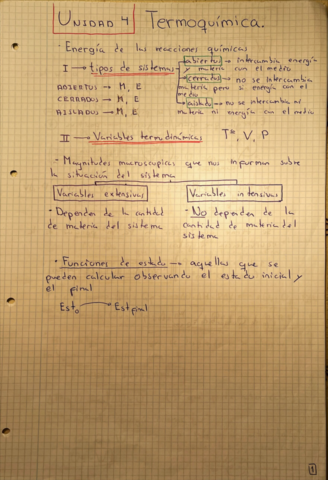 UNIDAD 4 Termoquímica.
· Energía de las reacciones químicas
I → tipos de sistemas → abiertos → Intercambia energía
y materia con el medio
cerrados → no se intercambia
materia pero si energía con el
medio
aislado → no se intercambia ni
materia ni energía con el medio
ABIERTOS → M, E
CERRADOS → M, E
AISLADOS → M, E
II → Variables termodinámicas T°, V, P
- Magnitudes macroscopicas que nos informan sobre
la situación del sistema
Variables extensivas Variables intensivas
· Dependen de la cantidad
de materia del sistema
· No dependen de la
cantidad de materia del
sistema
· Funciones de estado → aquellas que se
pueden calcular observando el estado inicial y
el final
Est₀ → Est final
1